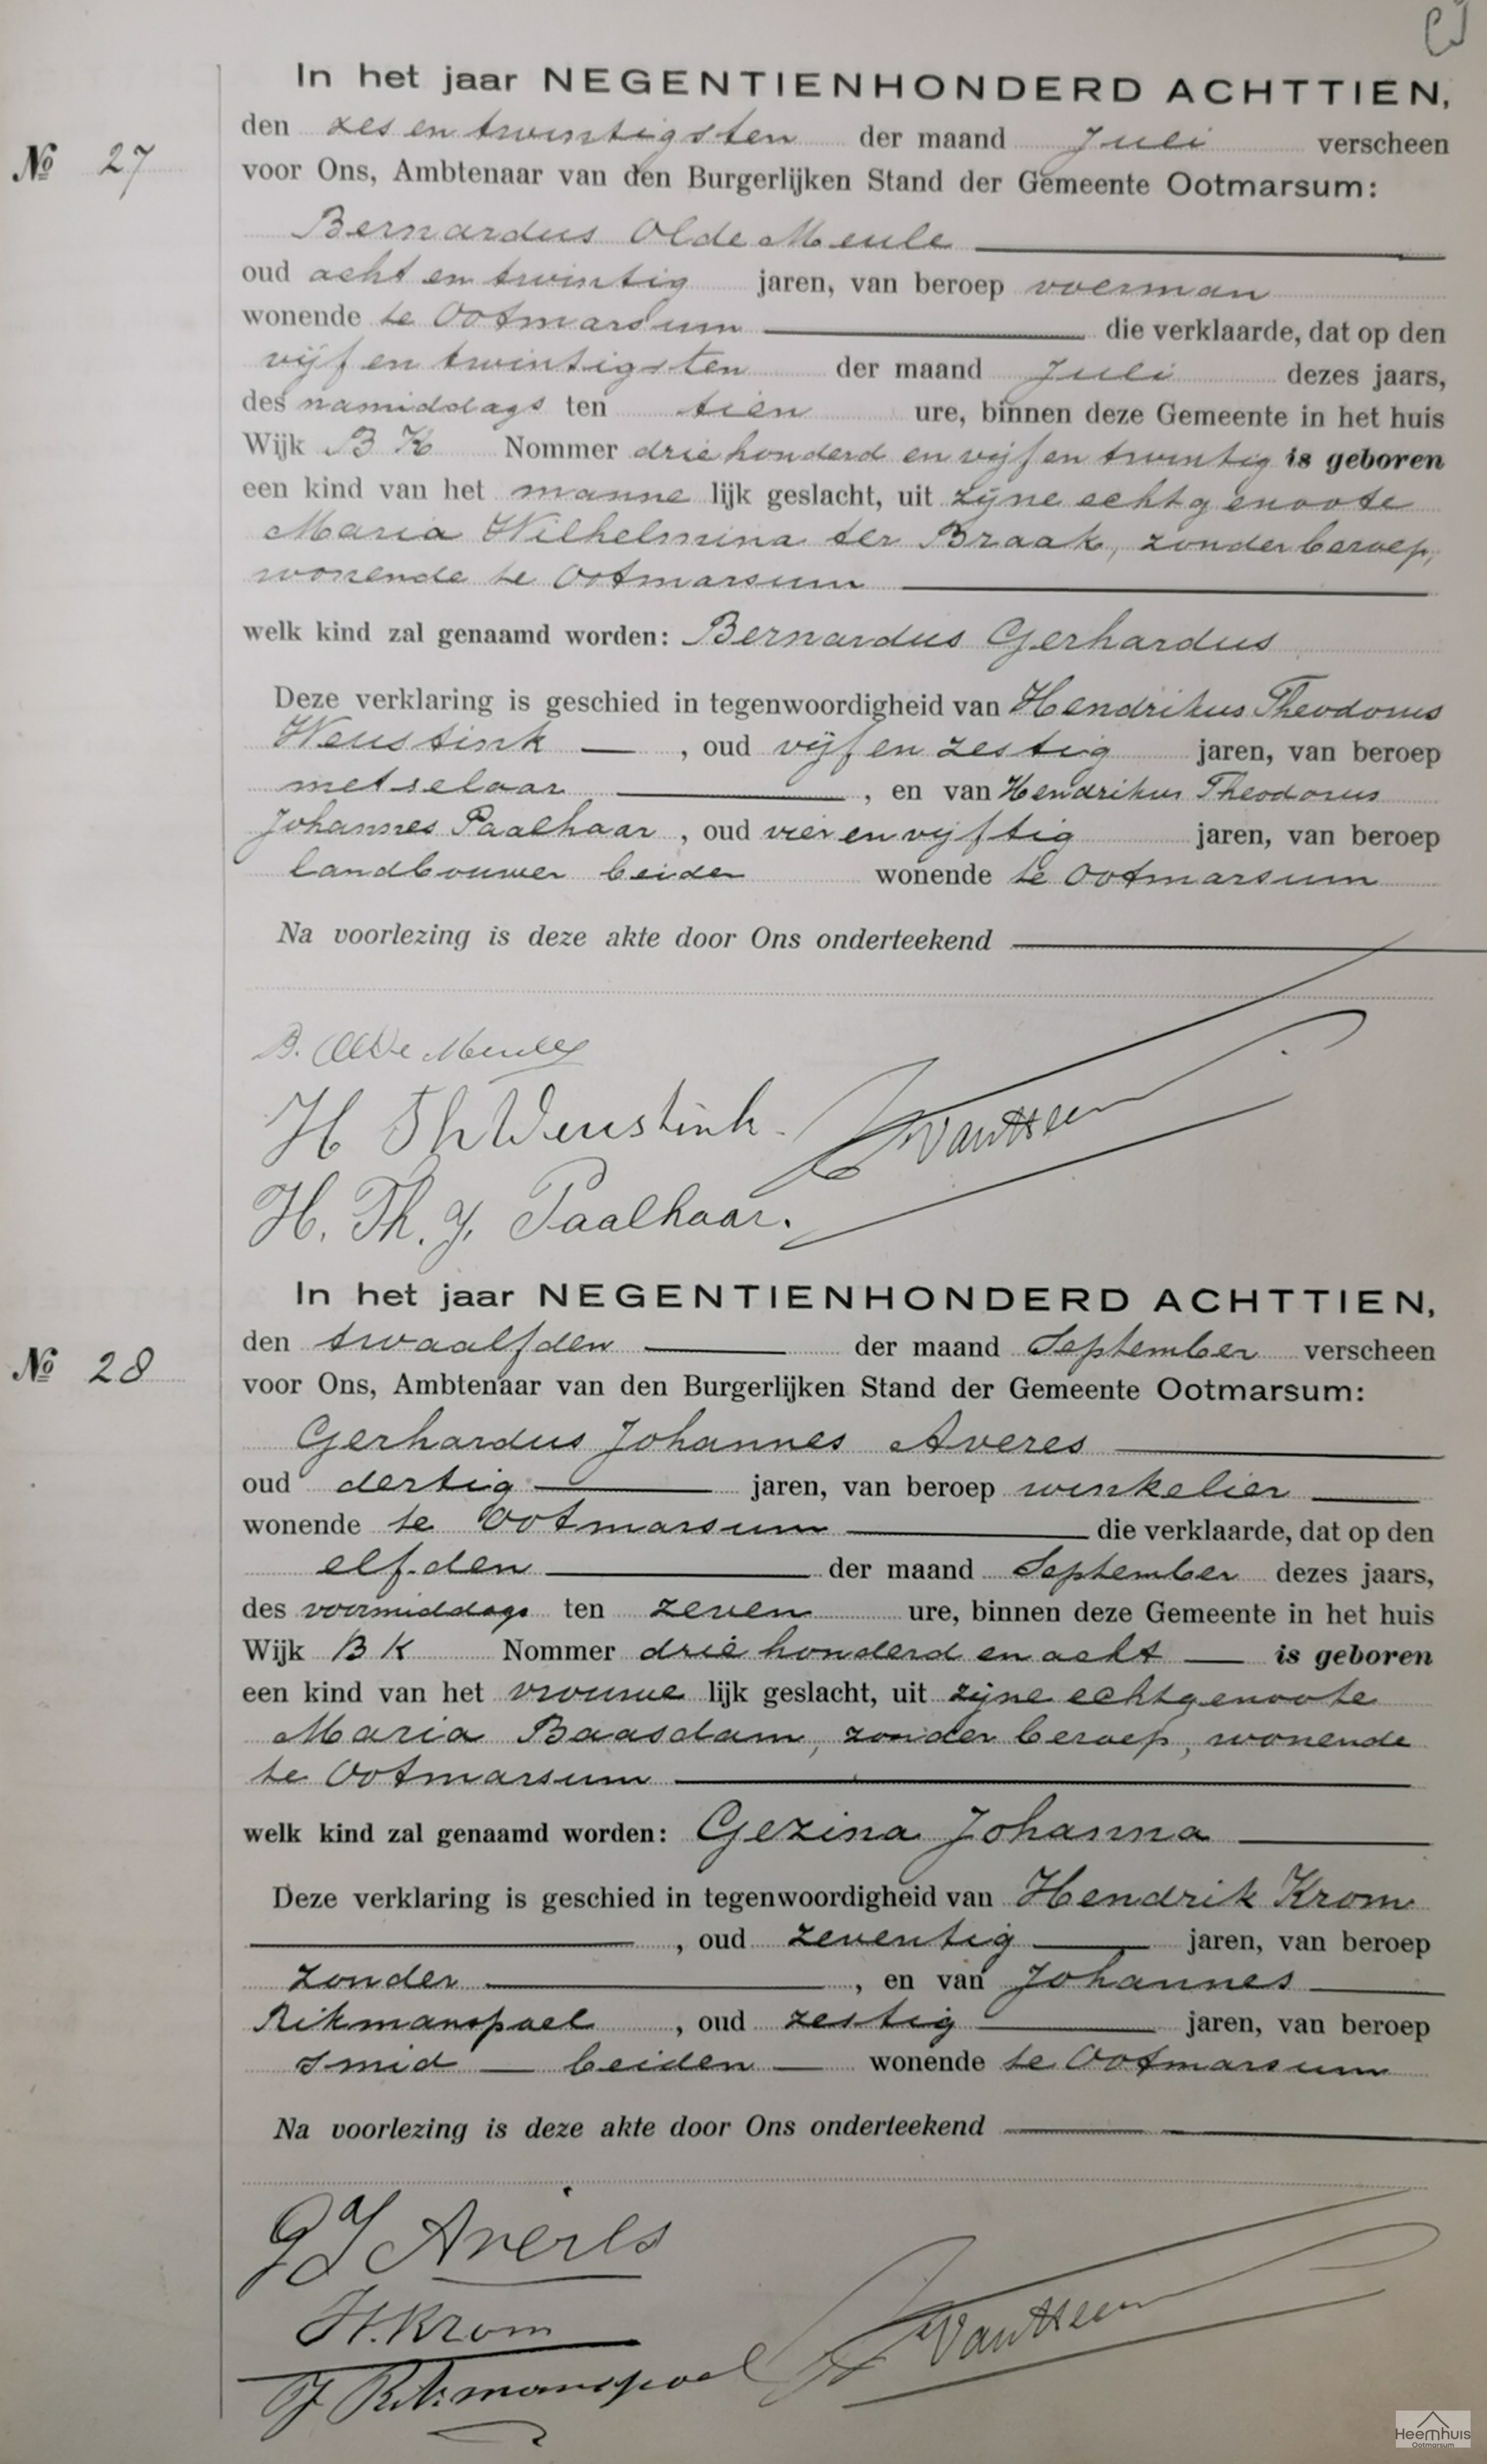 In het jaar NEGENTIENHONDERD ACHTTIEN,
den zes en twintigsten der maand Juli verscheen
No 27
voor Ons, Ambtenaar van den Burgerlijken Stand der Gemeente Ootmarsum:
Bernardus Olde Meule
oud acht en twintig jaren, van beroep voerman
wonende te Ootmarsum die verklaarde, dat op den
vijf en twintigsten der maand Juli dezes jaars,
des namiddags ten tien ure, binnen deze Gemeente in het huis
Wijk B K Nommer drie honderd en vijf en twintig is geboren
een kind van het manne lijk geslacht, uit zijne echtgenoote
Maria Wilhelmina ter Braak, zonder beroep,
wonende te Ootmarsum
welk kind zal genaamd worden: Bernardus Gerhardus
Deze verklaring is geschied in tegenwoordigheid van Hendrikus Theodorus
Weustink , oud vijf en zestig jaren, van beroep
metselaar , en van Hendrikus Theodorus
Johannes Paalhaar , oud vier en vijftig jaren, van beroep
landbouwer beiden wonende te Ootmarsum
Na voorlezing is deze akte door Ons onderteekend
B. Olde Meule
H Th Weustink.
H. Th. J. Paalhaar.
In het jaar NEGENTIENHONDERD ACHTTIEN,
den twaalfden der maand September verscheen
No 28
voor Ons, Ambtenaar van den Burgerlijken Stand der Gemeente Ootmarsum:
Gerhardus Johannes Averes
oud dertig jaren, van beroep winkelier
wonende te Ootmarsum die verklaarde, dat op den
elfden der maand September dezes jaars,
des voormiddags ten zeven ure, binnen deze Gemeente in het huis
Wijk B K Nommer drie honderd en acht is geboren
een kind van het vrouwe lijk geslacht, uit zijne echtgenoote
Maria Baasdam, zonder beroep, wonende
te Ootmarsum
welk kind zal genaamd worden: Gezina Johanna
Deze verklaring is geschied in tegenwoordigheid van Hendrik Krom
, oud zeventig jaren, van beroep
zonder , en van Johannes
Rikmanspoel , oud zestig jaren, van beroep
smid beiden wonende te Ootmarsum
Na voorlezing is deze akte door Ons onderteekend
GJ Averes
H. Krom
J Rikmanspoel
Heemhuis
Ootmarsum